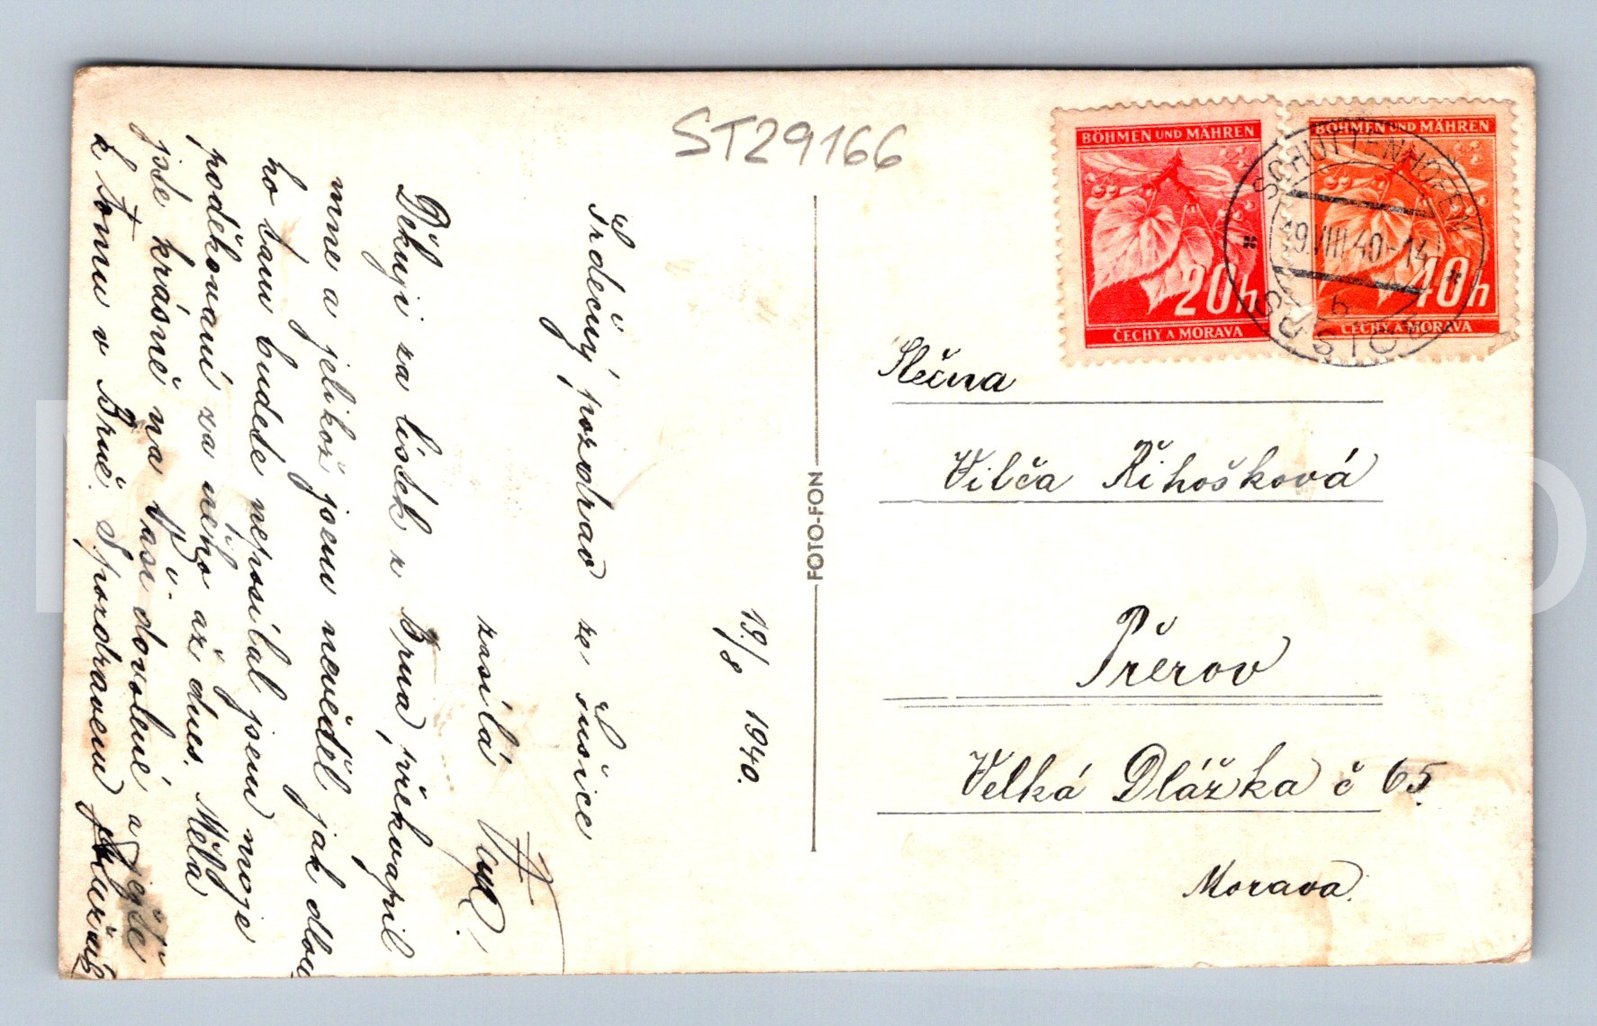 ST29166
BÖHMEN UND MÄHREN
20h
ČECHY A MORAVA
BÖHMEN UND MÄHREN
40h
ČECHY A MORAVA
SCHÜTTENHOFEN
19.VIII.40-14
6
SUŠICE
19./8 1940.
Srdečný pozdrav ze Sušice
zasílá
Děkuji za lístek z Brna, překvapil
mne a jelikož jsem nevěděl jak dlou
ho tam budete neposílal jsem moje
poděkování za něho až dnes. Měla
jste krásně na Vaší dovolené a ještě
k tomu v Brně. S pozdravem
FOTO-FON
Slečna
Vilča Řihošková
Přerov
Velká Dlážka č 65.
Morava.